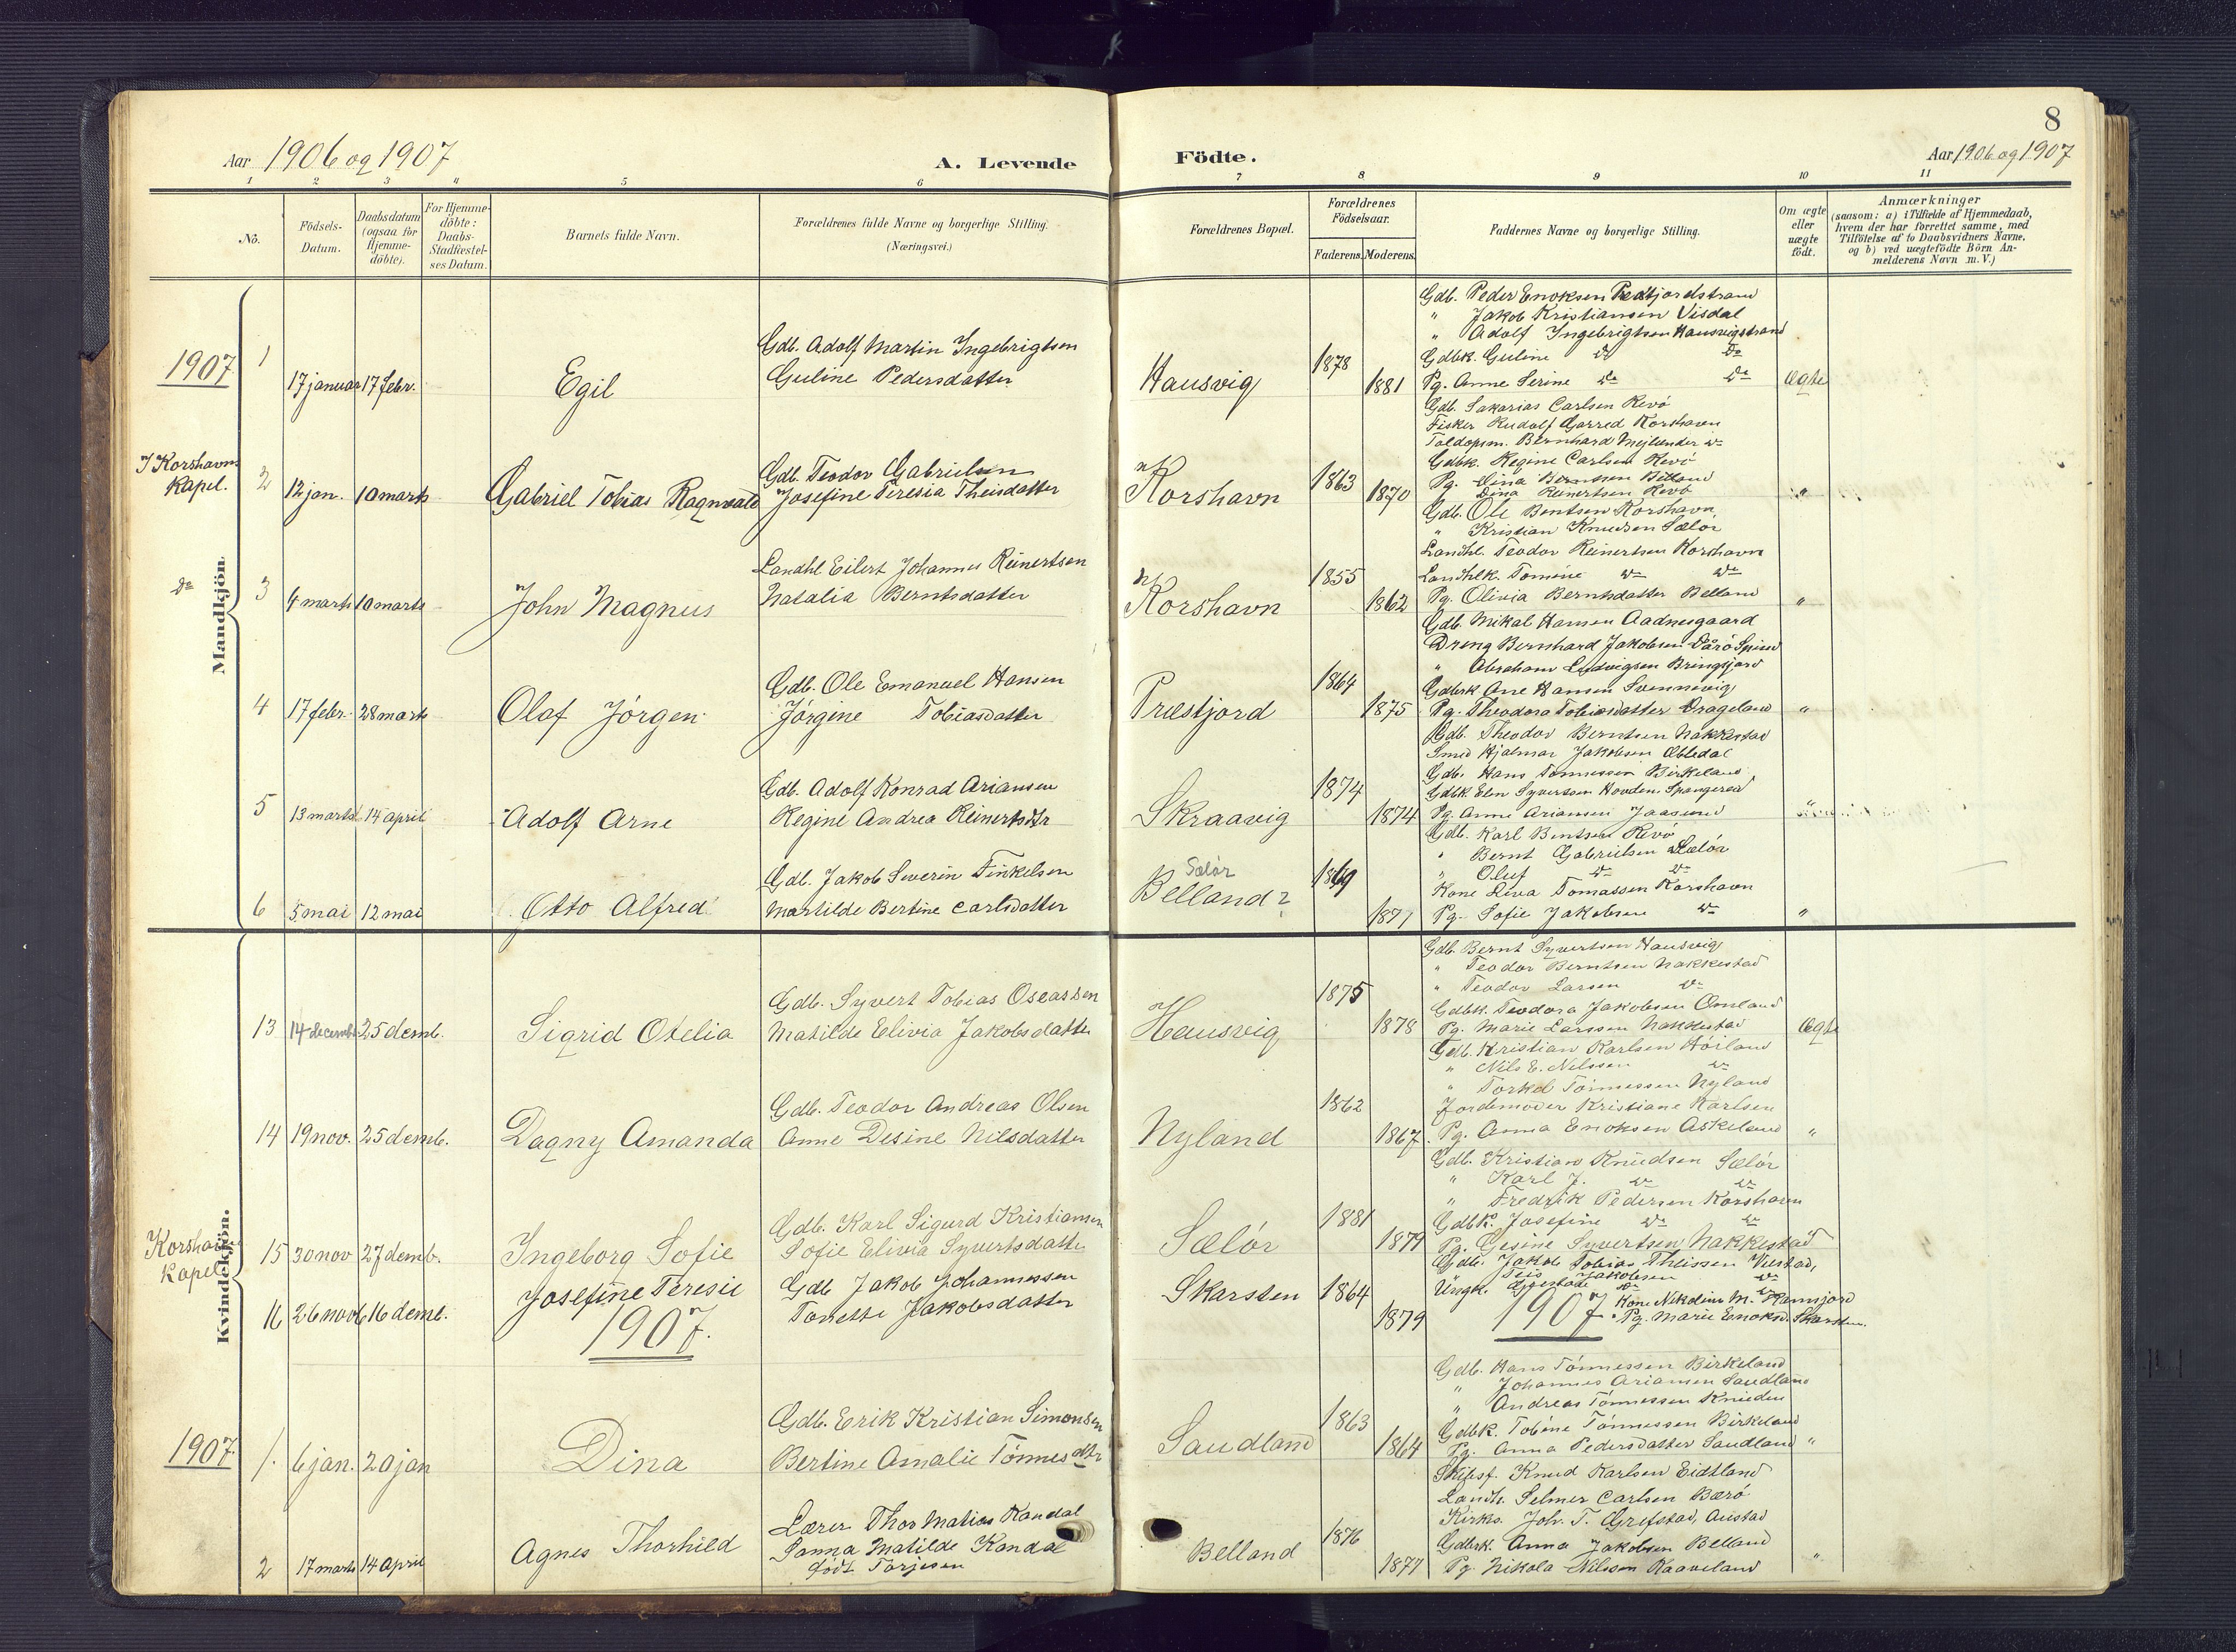 8
Aar 1906 og 1907
A. Levende
Födte.
Aar 1906 og 1907
1 2 3 " 5 6 7 8 9 10 11
No.
Födsels-Datum.
Daabsdatum (ogsaa for Hjemme-döbte).
For Hjemme-döbte: Daabs-Stadfæstel-ses Datum.
Barnets fulde Navn.
Forældrenes fulde Navne og borgerlige Stilling.
(Næringsvei.)
Forældrenes Bopæl.
Forældrenes Födselsaar.
Faderens. Moderens.
Faddernes Navne og borgerlige Stilling.
Om ægte eller uægte födt.
Anmærkninger
(saasom: a) i Tilfælde af Hjemmedaab, hvem der har forrettet samme, med Tilföielse af to Daabsvidners Navne, og b) ved uægtefödte Börn An-melderens Navn m. V.)
Mandkjön.
1907
1 17 januar 17 febr. Egil
Gdb. Adolf Martin Ingebrigtsen
Guline Pedersdatter
Hausvig 1878 1881
Gdb. Peder Enoksen Prestjordstrand
" Jakob Kristiansen Visdal
" Adolf Ingebrigtsen Hausvigstrand
Gdbk. Guline do do
Pg. Anne Serine do do
Ægte
I Korshavns Kapel.
2 12 jan. 10 marts Gabriel Tobias Ragnvald
Gdb. Teodor Gabrielsen
Josefine Teresia Theisdatter
Korshavn 1863 1870
Gdb. Sakarias Carlsen Revö
Fisker Rudolf Garred Korshavn
Toldopsm. Bernhard Mejlænder do
Gdbk. Regine Carlsen Revö
Pg. Elina Berntsen Belland
" Dina Reinertsen Revö
"
do
3 4 marts 10 marts John Magnus
Landhl Eilert Johannes Reinertsen
Natalia Berntsdatter
Korshavn 1855 1862
Gdb. Ole Bentsen Korshavn
" Kristian Knudsen Sælör
Landhl. Teodor Reinertsen Korshavn
Landhlk. Tomine do do
Pg. Olivia Berntsdatter Belland
"
4 17 febr. 28 marts Olaf Jörgen
Gdb. Ole Emanuel Hansen
Jörgine Tobiasdatter
Præstjord 1864 1875
Gdb. Mikal Hansen Aadnesgaard
Dreng Bernhard Jakobsen Værö Spind
" Abraham Ludvigsen Bringsjord
Gdbrk Ane Hansen Svennevig
Pg. Theodora Tobiasdatter Drageland
"
5 13 marts 14 april Adolf Arne
Gdb. Adolf Konrad Ariansen
Regine Andrea Reinertsdtr
Skraavig 1874 1874
Gdb. Theodor Berntsen Nakkestad
Smed Hjalmar Jakobsen Æbledal
Gdb. Hans Tönnessen Birkeland
Gdbk Elen Syvertsen Houden Spangereid
Pg. Anne Ariansen Jaasund
"
6 5 mai 12 mai Otto Alfred
Gdb. Jakob Severin Tinkelsen
Martilde Bertine Carlsdatter
Sælör
Belland? 1869 1877
Gdb. Karl Bentsen Revö
" Bernt Gabrielsen Sælör
" Oluf do do
Kone Lina Tomassen Korshavn
Pg. Sofie Jakobsen do
"
Kvindekjön.
13 14 decembr 25 decmb. Sigrid Otelia
Gdb. Syvert Tobias Oseassen
Matilde Elivia Jakobsdatter
Hausvig 1875 1878
Gdb. Bernt Syvertsen Hausvig
" Teodor Berntsen Nakkestad
" Teodor Larsen do
Gdbk. Teodora Jakobsen Omland
Pg. Marie Larssen Nakkestad
Ægte
14 19 nov. 25 decmb. Dagny Amanda
Gdb. Teodor Andreas Olsen
Anne Desine Nilsdatter
Nyland 1862 1867
Gdb. Kristian Karlsen Höiland
" Nils E. Nilssen do
" Torkel Tönnessen Nyland
Jordemoder Kristiane Karlsen
Pg. Anna Enoksen Askeland
"
Korshavns Kapel
15 30 nov 27 decmb. Ingeborg Sofie
Gdb. Karl Sigurd Kristiansen
Sofie Elivia Syvertsdatter
Sælör 1881 1879
Gdb. Kristian Knudsen Sælör
" Karl J. do do
" Fredrik Pedersen Korshavn
Gdbk. Josefine do do
Pg. Gesine Syvertsen Nakkestad
"
16 26 novb 16 decmb. Josefine Teresie
Gdb Jakob Johannessen
Tonette Jakobsdatter
Skarsten 1864 1879
Gdb. Jakob Tobias Theissen Vestad,
" Teis Jakobsen do
Ungk. do
Kone Nikoline M. Ramsjord
Pg. Marie Enoksd. Skarsten.
1907.
1907
1907
1. 6 jan. 20 jan Dina
Gdb. Erik Kristian Simonsen
Bertine Amalie Tönnesdtr
Sandland 1863 1864
Gdb. Hans Tönnessen Birkeland
" Johannes Ariansen Sandland
" Andreas Tönnessen Knieden
Gdbk. Tobine Tönnessen Birkeland
Pg. Anna Pedersdatter Sandland
"
2 17 marts 14 april Agnes Thorhild
Lærer Thor Matias Kandal
Sanna Matilde Kandal
født Torjesen
Belland 1876 1877
Skibsf. Knud Karlsen Eidtland
Landh. Selmer Carlsen Bærö
Kirks. Joh. T. Grefstad, Austad
Gdbrk. Anna Jakobsen Belland
Pg. Nikola Nilssen Kaaveland
"